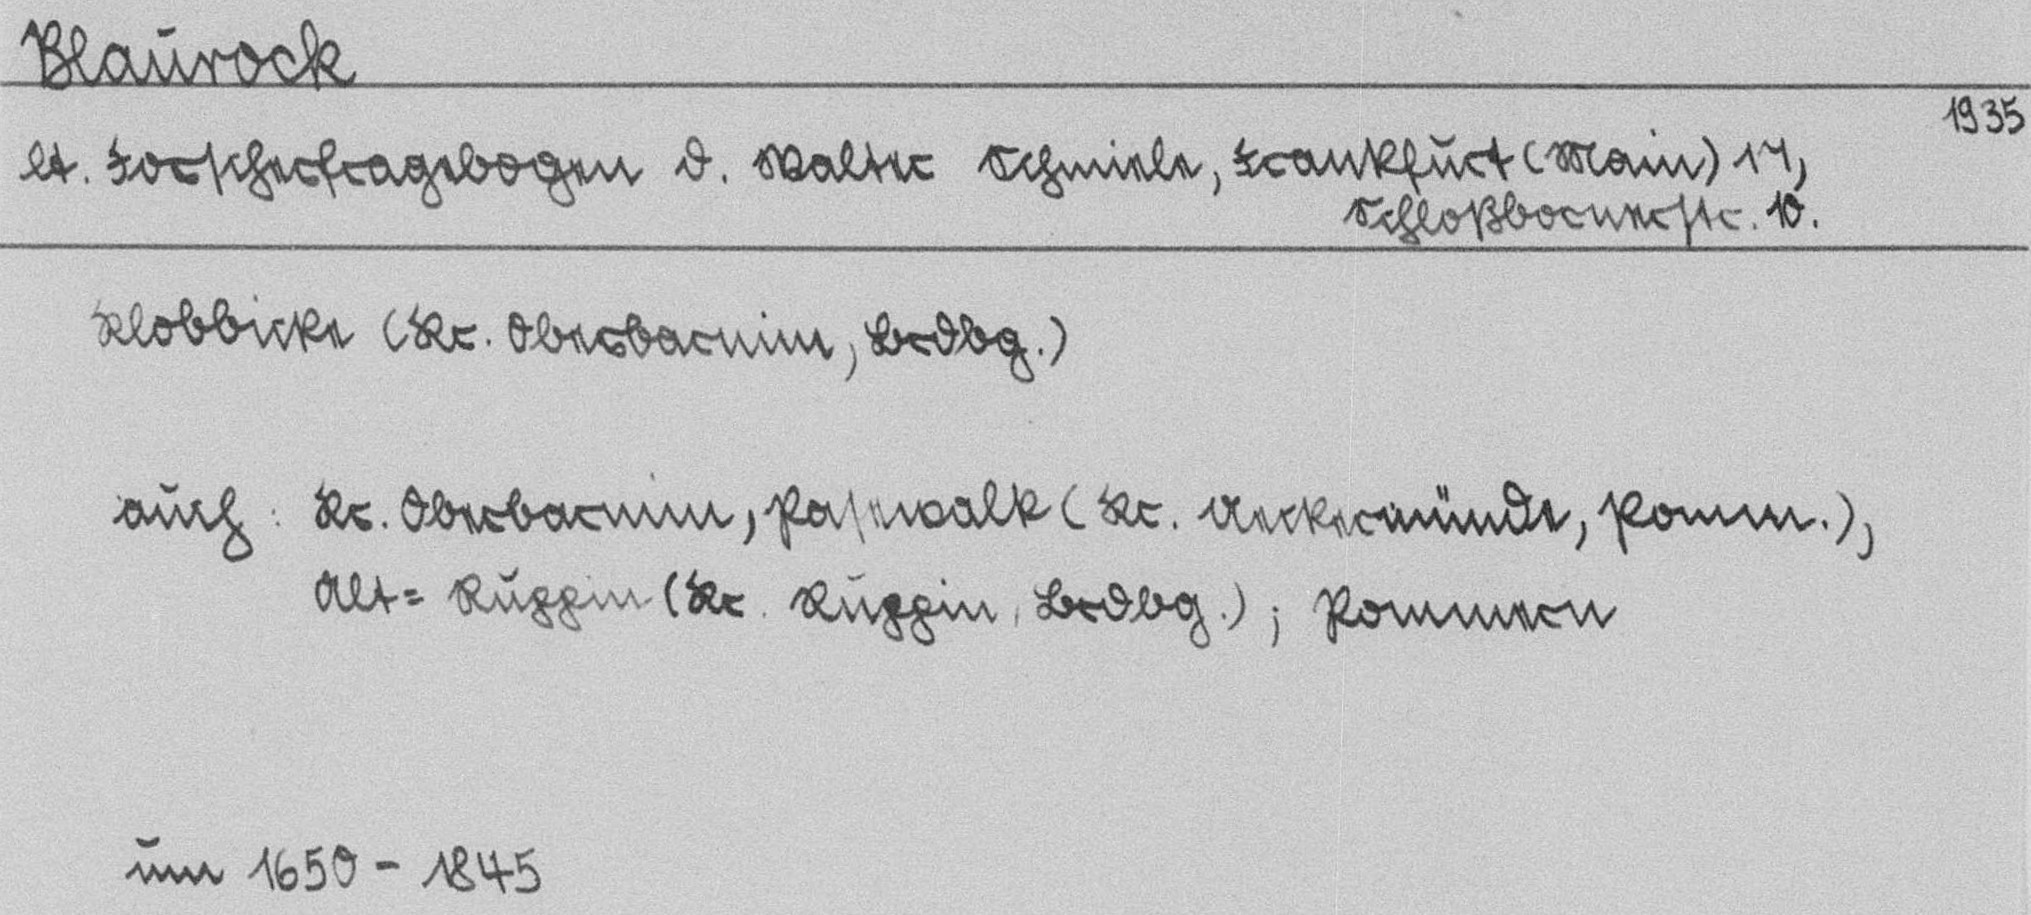 Blaurock
1935
lt. Forscherfragebogen d. Walter Schmiele, Frankfurt (Main) 17,
Schloßbornerstr. 10.
Klobbicke (Kr. Oberbarnim, Brdbg.)
auch: Kr. Oberbarnim, Pasewalk (Kr. Ueckermünde, Pomm.),
Alt= Ruppin (Kr. Ruppin, Brdbg.); Pommern
um 1650 - 1845